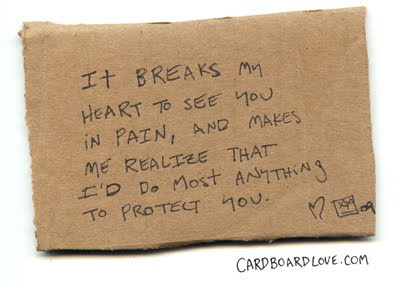 It BREAKS My
HEART TO SEE YOU
iN PAIN, AND MAKES
ME REALIZE THAT
I'D DO MOST ANYTHiNG
TO PROTECT YOU.
09
CARDBOARDLOVE.COM